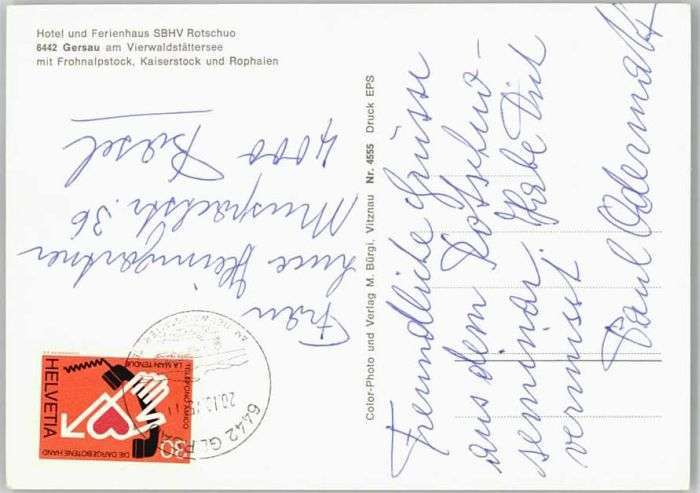 Hotel und Ferienhaus SBHV Rotschuo
6442 Gersau am Vierwaldstättersee
mit Frohnalpstock, Kaiserstock und Rophaien
Freundliche Grüsse
aus dem Rotschuo-
seminar. Habe Dich
vermisst
Paul Odermatt
Color-Photo und Verlag M. Bürgi, Vitznau Nr. 4555 Druck EPS
Frau
Luce Heimgartner
Muespachstr. 36
4000 Basel
HELVETIA
DIE DARGEBOTENE HAND
TELEFONO AMICO
LA MAIN TENDUE
30
6442